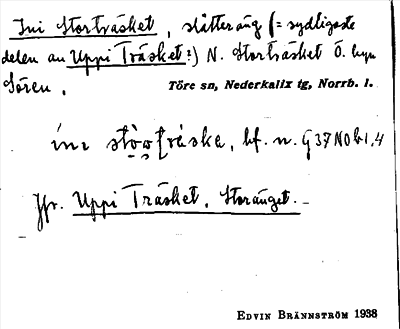 Ini Storträsket, slåtteräng (= sydligaste
delen av Uppi Träsket?) N. Storträsket Ö. byn
Sören. Töre sn, Nederkalix tg, Norrb. l.
bf. n. G 37 NO b 1,4
Jfr. Uppi Träsket, Storänget.
EDVIN BRÄNNSTRÖM 1938